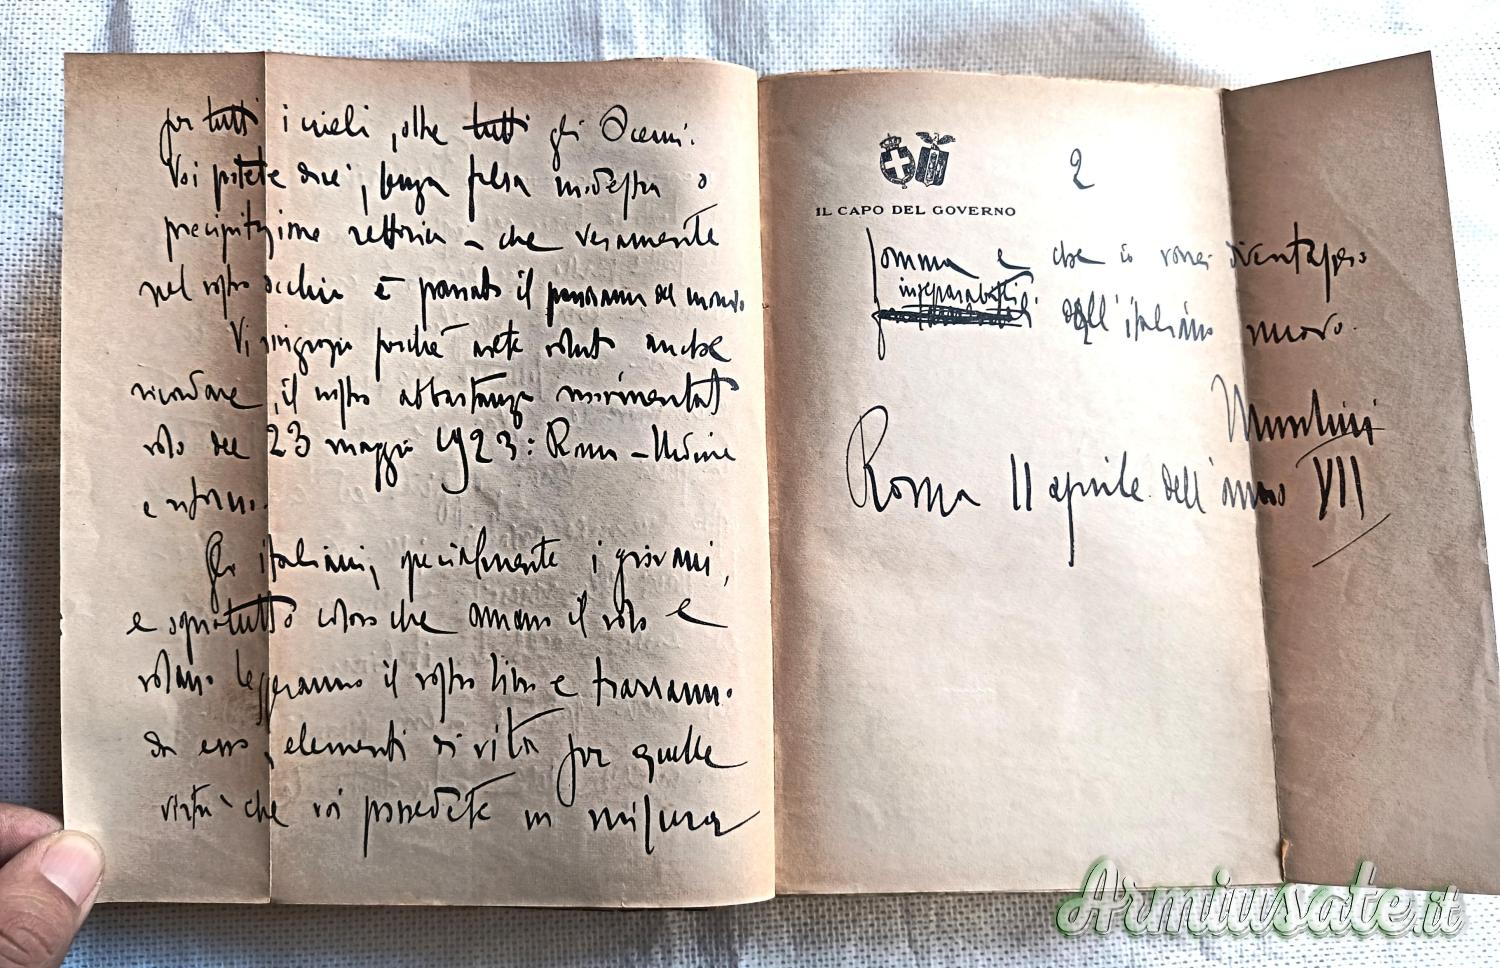 per tutti i cieli, oltre tutti gli Oceani.
Voi potete dire, senza falsa modestia o
precipitazione rettorica – che veramente
nel vostro occhio è passato il panorama del mondo
Vi ringrazio perché avete voluto anche
ricordare, il nostro abbastanza movimentato
volo del 23 maggio 1923: Roma – Udine
e ritorno.
Gli italiani, specialmente i giovani,
e sopratutto coloro che amano il volo e
volano leggeranno il vostro libro e trarranno
da esso, elementi di vita per quelle
virtù che voi possedete in misura
IL CAPO DEL GOVERNO
2
somma e che io vorrei diventassero
inseparabili
dell'italiano nuovo.
Mussolini
Roma 11 aprile dell'anno VII
Armiusate.it